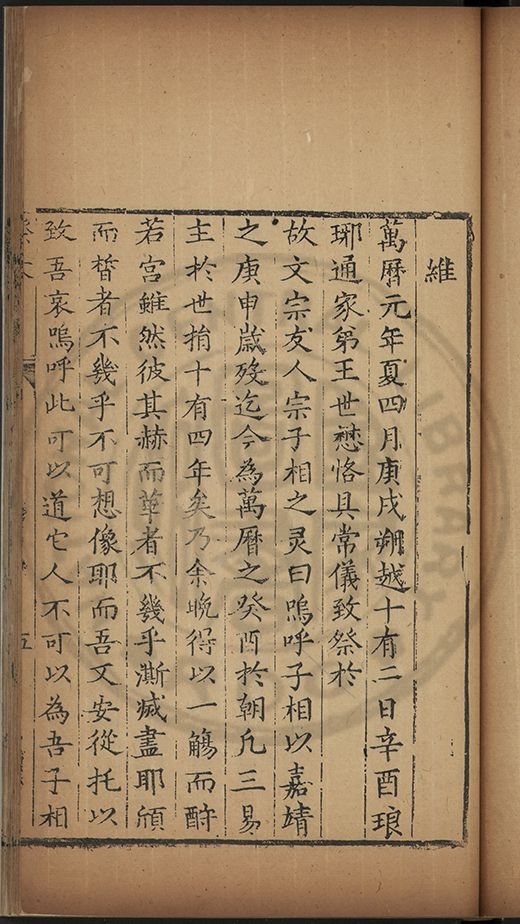 維
萬曆元年夏四月庚戌朔越十有二日辛酉琅
琊通家弟王世懋恪具常儀致祭於
故文宗友人宗子相之灵曰嗚呼子相以嘉靖
之庚申歲歿迄今為萬曆之癸酉於朝凡三易
主於世捐十有四年矣乃余晚得以一觴而酹
若宮雖然彼其赫而華者不幾乎澌滅盡耶頎
而晳者不幾乎不可想像耶而吾又安從托以
致吾哀嗚呼此可以道它人不可以為吾子相
五